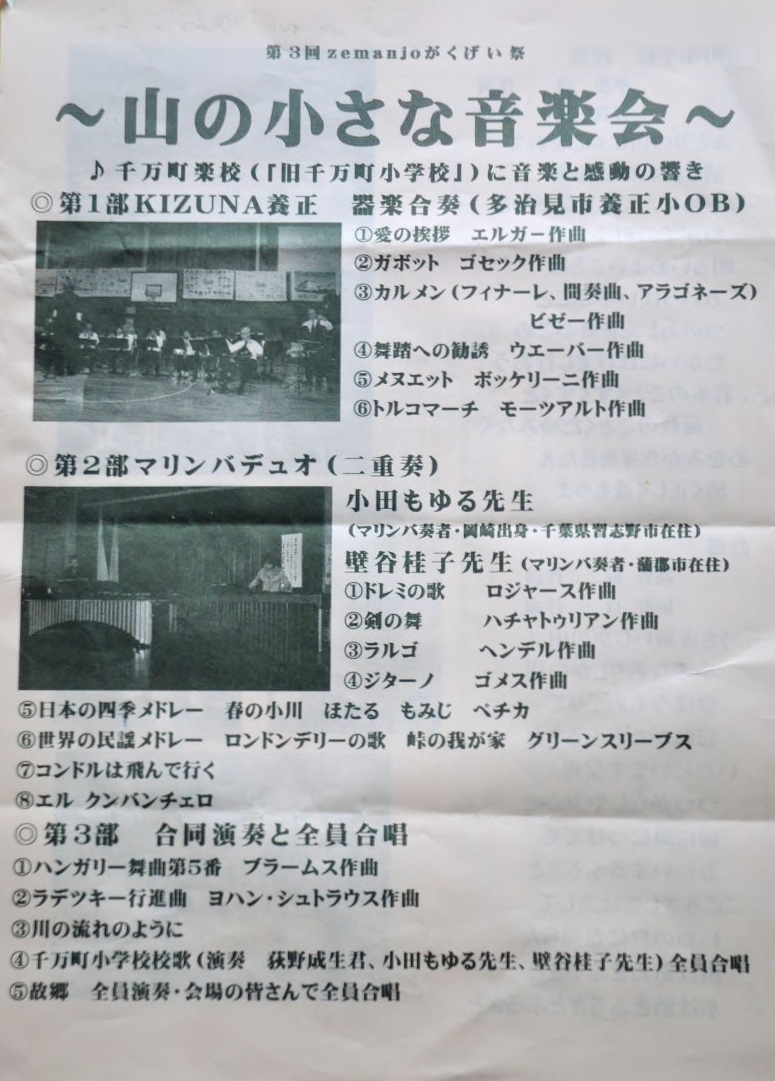 第3回zemanjoがくげい祭
～山の小さな音楽会～
♪千万町楽校(『旧千万町小学校』)に音楽と感動の響き
◎第1部KIZUNA養正　器楽合奏(多治見市養正小OB)
①愛の挨拶　エルガー作曲
②ガボット　ゴセック作曲
③カルメン(フィナーレ、間奏曲、アラゴネーズ)
ビゼー作曲
④舞踏への勧誘　ウエーバー作曲
⑤メヌエット　ボッケリーニ作曲
⑥トルコマーチ　モーツアルト作曲
◎第2部マリンバデュオ(二重奏)
小田もゆる先生
(マリンバ奏者・岡崎出身・千葉県習志野市在住)
壁谷桂子先生(マリンバ奏者・蒲郡市在住)
①ドレミの歌　ロジャース作曲
②剣の舞　ハチャトゥリアン作曲
③ラルゴ　ヘンデル作曲
④ジターノ　ゴメス作曲
⑤日本の四季メドレー　春の小川　ほたる　もみじ　ペチカ
⑥世界の民謡メドレー　ロンドンデリーの歌　峠の我が家　グリーンスリーブス
⑦コンドルは飛んで行く
⑧エル クンバンチェロ
◎第3部　合同演奏と全員合唱
①ハンガリー舞曲第5番　ブラームス作曲
②ラデツキー行進曲　ヨハン・シュトラウス作曲
③川の流れのように
④千万町小学校校歌(演奏　荻野成生君、小田もゆる先生、壁谷桂子先生)全員合唱
⑤故郷　全員演奏・会場の皆さんで全員合唱